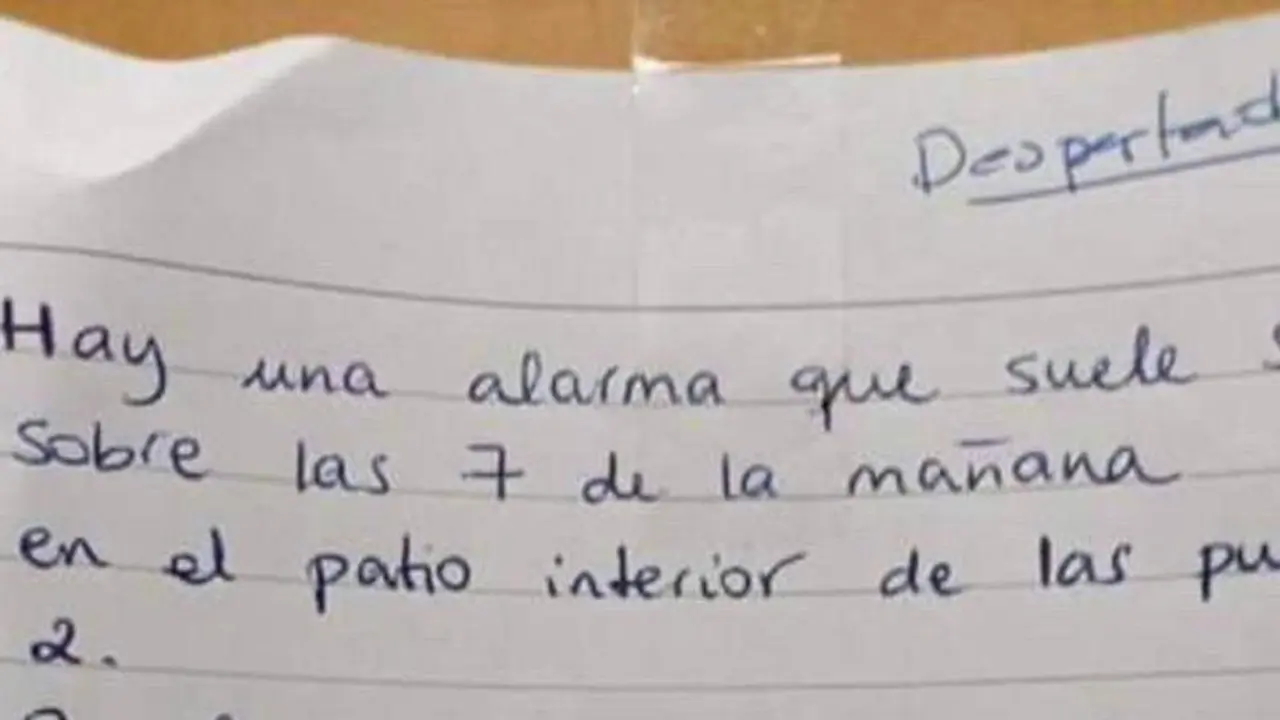 Despertad
Hay una alarma que suele s
sobre las 7 de la mañana
en el patio interior de las pu
2.